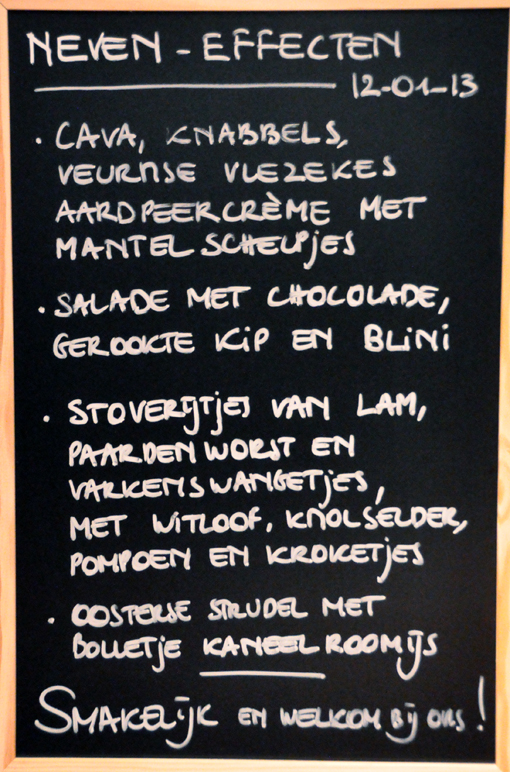 NEVEN - EFFECTEN
12-01-13
• CAVA, KNABBELS,
VEURNSE VLEZEKES
AARDPEERCRÈME MET
MANTELSCHELPJES
• SALADE MET CHOCOLADE,
GEROOKTE KIP EN BLINI
• STOVERIJTJES VAN LAM,
PAARDENWORST EN
VARKENSWANGETJES,
MET WITLOOF, KNOLSELDER,
POMPOEN EN KROKETJES
• OOSTERSE STRUDEL MET
BOLLETJE KANEELROOMIJS
SMAKELIJK EN WELKOM BIJ ONS!